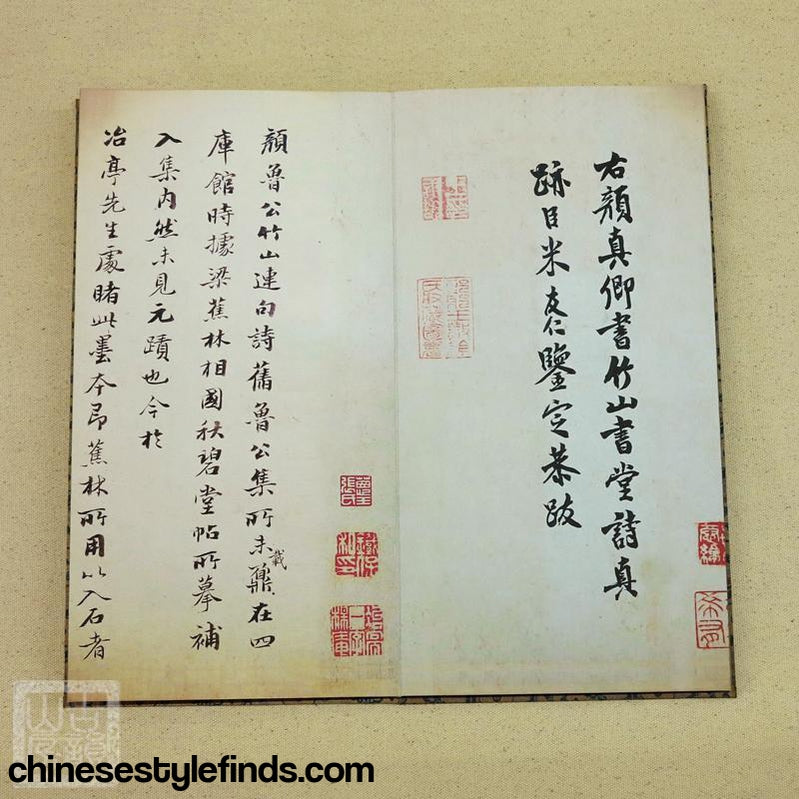 右顏真卿書竹山書堂詩真
跡臣米友仁鑒定恭跋
顏魯公竹山連句詩舊魯公集所未載鼐在四
庫館時據梁蕉林相國秋碧堂帖所摹補
入集內然未見元蹟也今於
冶亭先生處睹此墨本即蕉林所用以入石者
chinesestylefinds.com